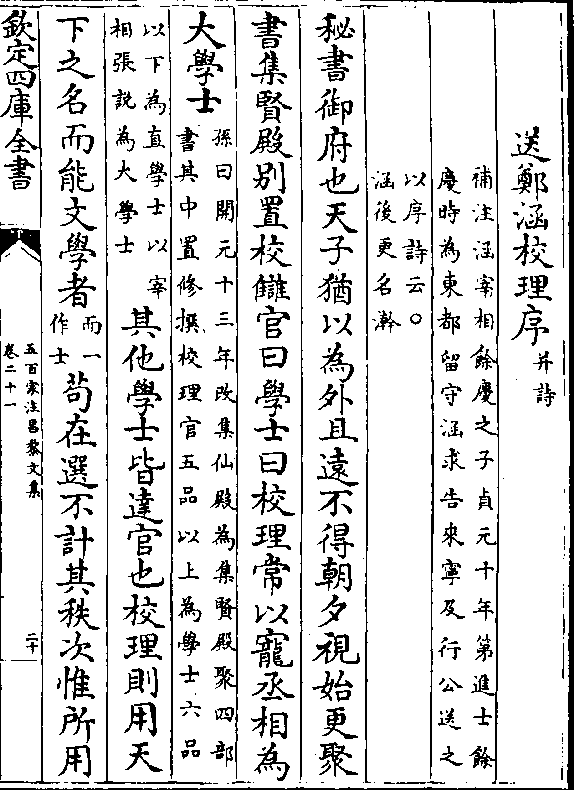 送鄭涵校理序并詩
補注涵宰相餘慶之子貞元十年第進士餘
慶時為東都留守涵求告來寧及行公送之
以序詩云○
涵後更名澣
秘書御府也天子猶以為外且遠不得朝夕視始更聚
書集賢殿别置校讎官曰學士曰校理常以寵丞相為
大學士
孫曰開元十三年改集仙殿為集賢殿聚四部
書其中置修撰校理官五品以上為學士六品
以下為直學士以宰
相張説為大學士
其他學士皆達官也校理則用天
下之名而能文學者
而一
作士
苟在選不計其秩次惟所用
欽定四庫全書
五百家注昌黎文集
卷二十一
二十